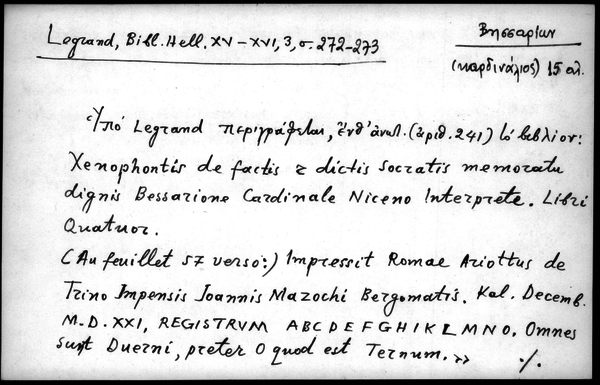 Legrand, Bibl. Hell. XV-XVI, 3, σ. 272-273
Βησσαρίων
(καρδινάλιος) 15 αι.
Ὑπό Legrand περιγράφεται, ἔνθ' ἀνωτ. (ἀριθ. 241) τό βιβλίον:
Xenophontis de factis & dictis Socratis memoratu
dignis Bessarione Cardinale Niceno Interprete. Libri
Quatuor.
(Au feuillet 57 verso:) Impressit Romae Ariottus de
Trino Impensis Joannis Mazochi Bergomatis. Kal. Decemb.
M.D.XXI, REGISTRVM ABCDEFGHIKLMNO. Omnes
sunt Duerni, preter O quod est Ternum.»
./.